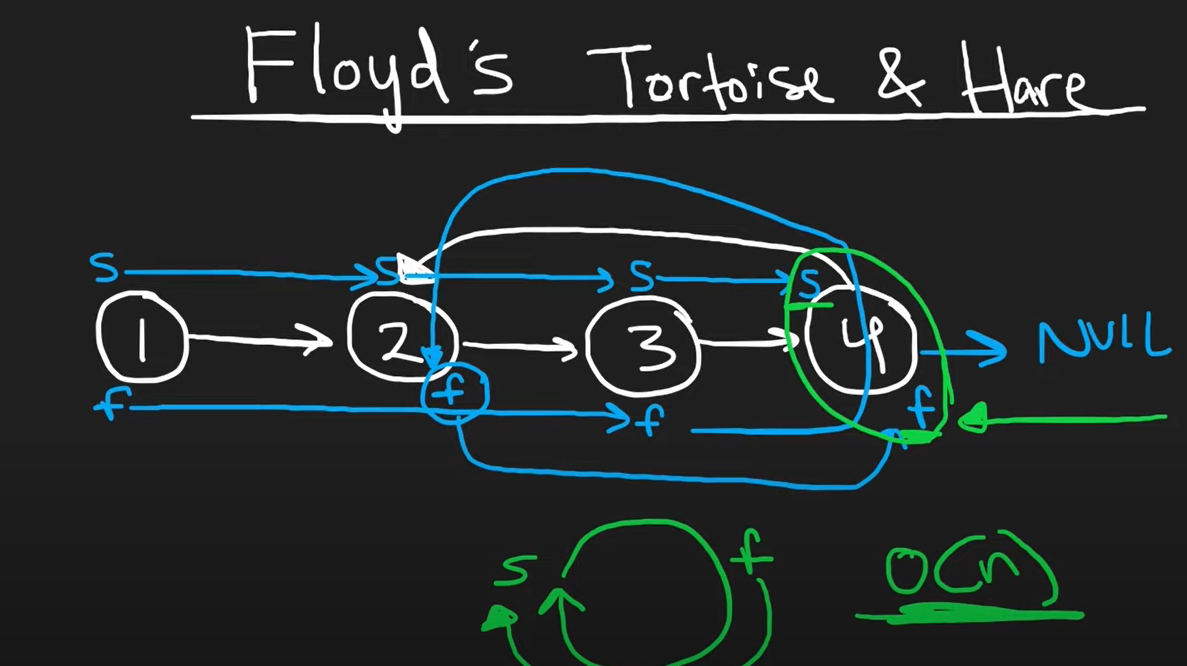 Floyd's Tortoise & Hare
S S S S
1 2 3 4 NULL
f f f f
S f O(n)